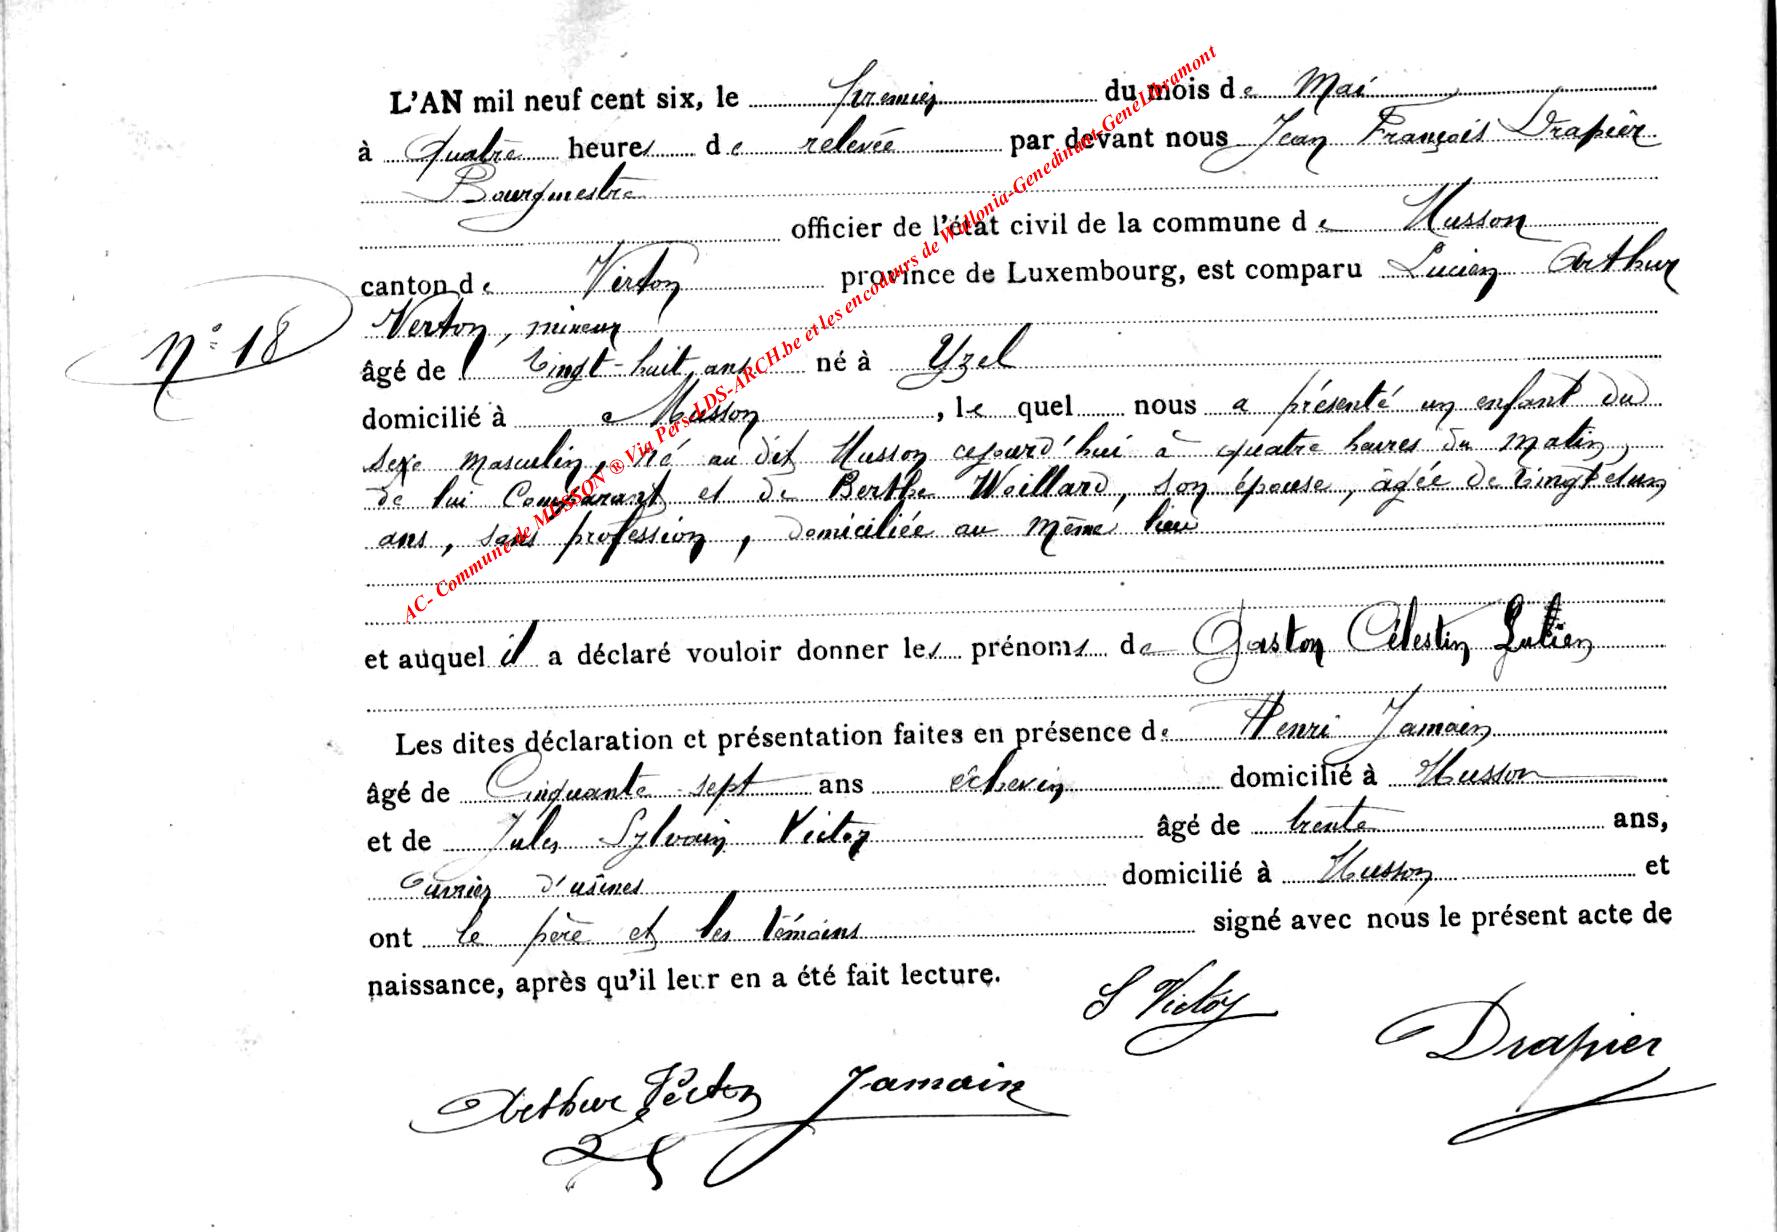 L'AN mil neuf cent six, le premier du mois de Mai
à Quatre heures de relevée par devant nous Jean François Drapier
Bourgmestre
officier de l'état civil de la commune de Musson
canton de Virton province de Luxembourg, est comparu Lucien Arthur
Verton, mineur
N° 18
âgé de Vingt-huit ans né à Yzel
domicilié à Musson, le quel nous a présenté un enfant du
sexe masculin, né au dit Musson cejourd'hui à quatre heures du matin,
de lui Comparant et de Berthe Weillard, son épouse, âgée de vingt et un
ans, sans profession, domiciliée au même lieu
et auquel il a déclaré vouloir donner les prénoms de Gaston Célestin Lucien
Les dites déclaration et présentation faites en présence de Henri Jamain
âgé de Cinquante sept ans échevin domicilié à Musson
et de Jules Sylvain Victor âgé de trente ans,
Ouvrier d'usines domicilié à Musson et
ont le père et les témoins signé avec nous le présent acte de
naissance, après qu'il leur en a été fait lecture.
S Victor
Drapier
Arthur Verton Jamain
AC- Commune de MUSSON ® Via Pers LDS-ARCH.be et les encodeurs de Wallonia-Genedinant-GeneLibramont